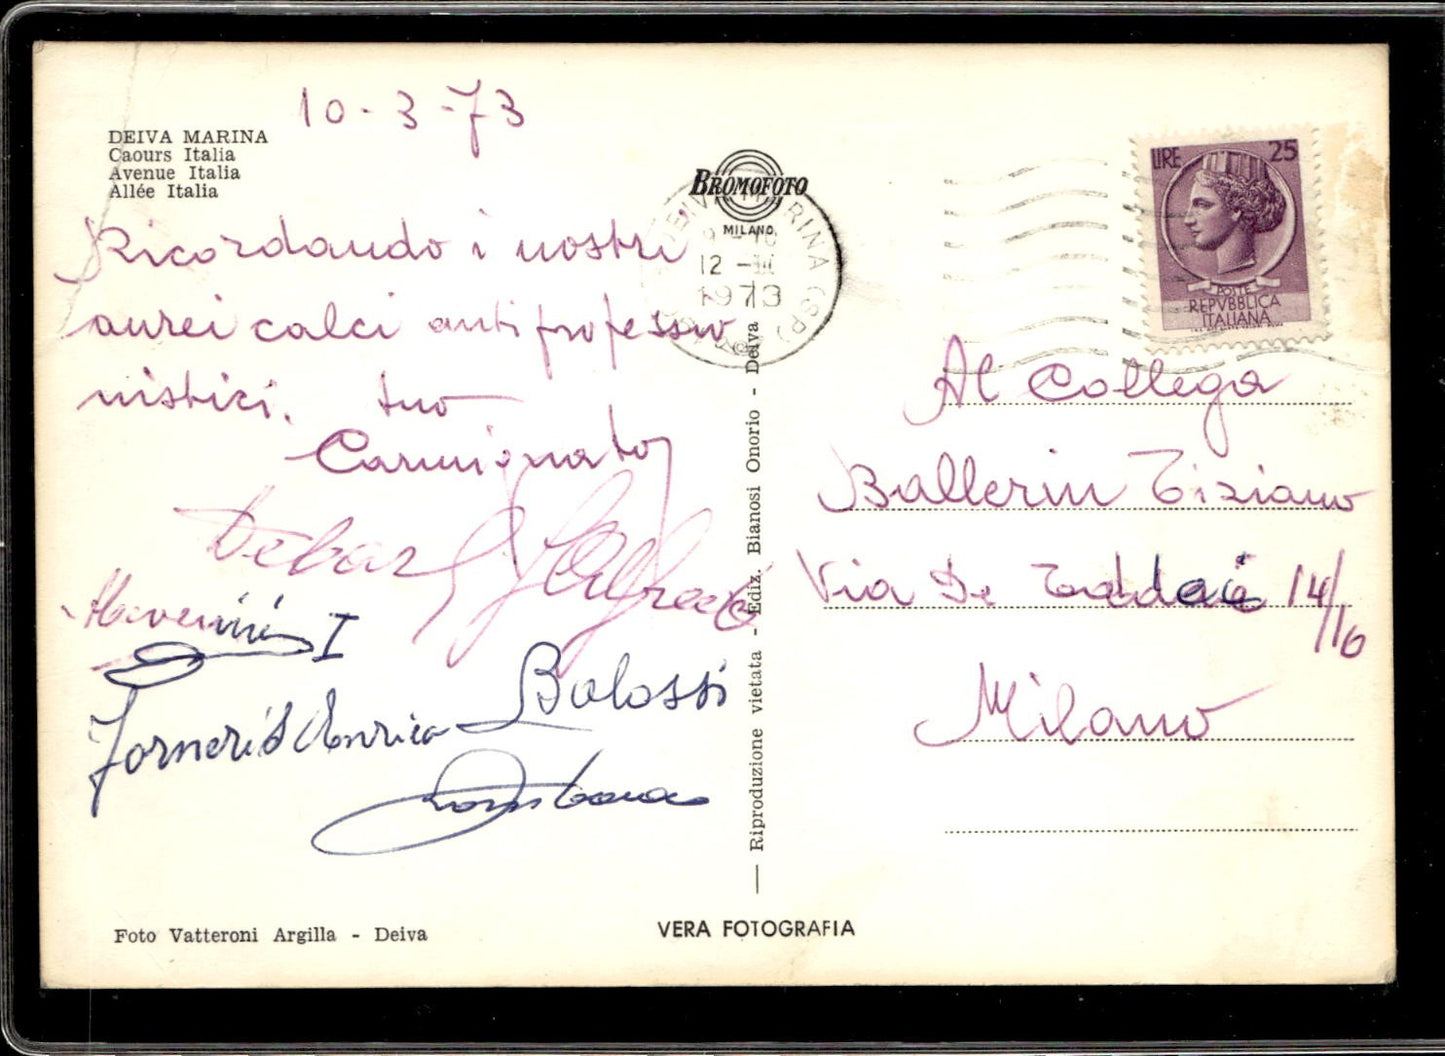 10-3-73
DEIVA MARINA
Caours Italia
Avenue Italia
Allée Italia
BROMOFOTO
MILANO
DEIVA MARINA (SP)
9-10
12-III
1973
LIRE 25
POSTE
REPVBBLICA
ITALIANA
Ricordando i nostri
aurei calci antiprofessio
nistici. tuo
Carmignato
Alfredo
I
Balossi
Forneris Enrica
Al Collega
Ballerin Tiziano
Via De Taddei 14/16
Milano
— Riproduzione vietata - Ediz. Bianosi Onorio - Deiva
Foto Vatteroni Argilla - Deiva
VERA FOTOGRAFIA